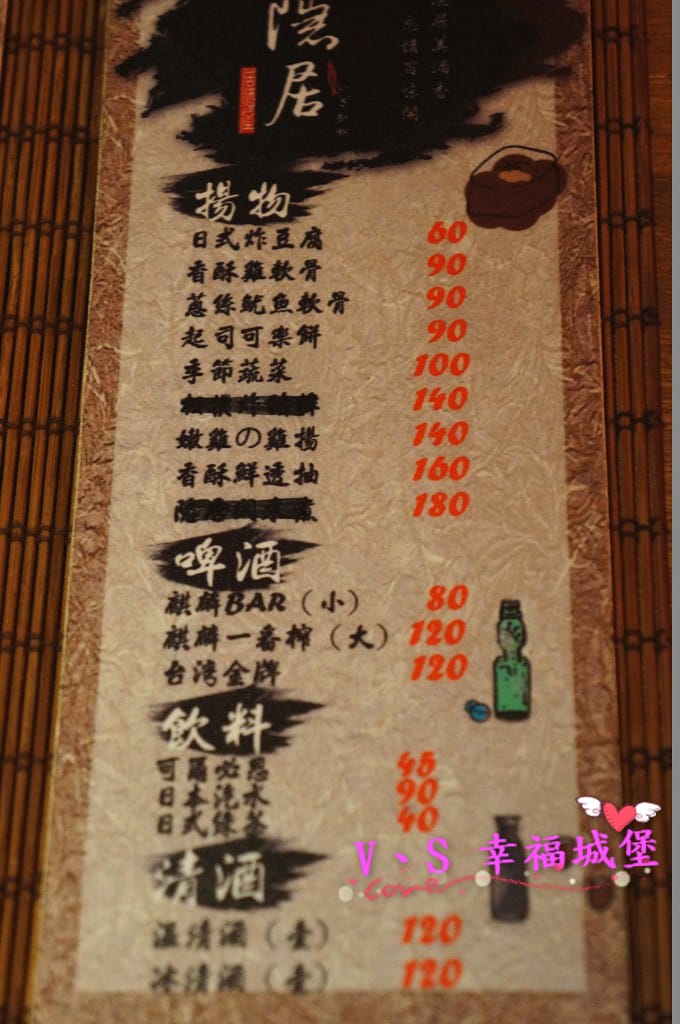 隱居
居美酒香
忘情百味開
いざかや
揚物
日式炸豆腐 60
香酥雞軟骨 90
蔥絲魷魚軟骨 90
起司可樂餅 90
季節蔬菜 100
140
嫩雞の雞揚 140
香酥鮮透抽 160
180
啤酒
麒麟BAR（小） 80
麒麟一番搾（大） 120
台灣金牌 120
飲料
可爾必思 45
日本汽水 90
日式綠茶 40
清酒
溫清酒（壺） 120
冰清酒（壺） 120
V、S 幸福城堡